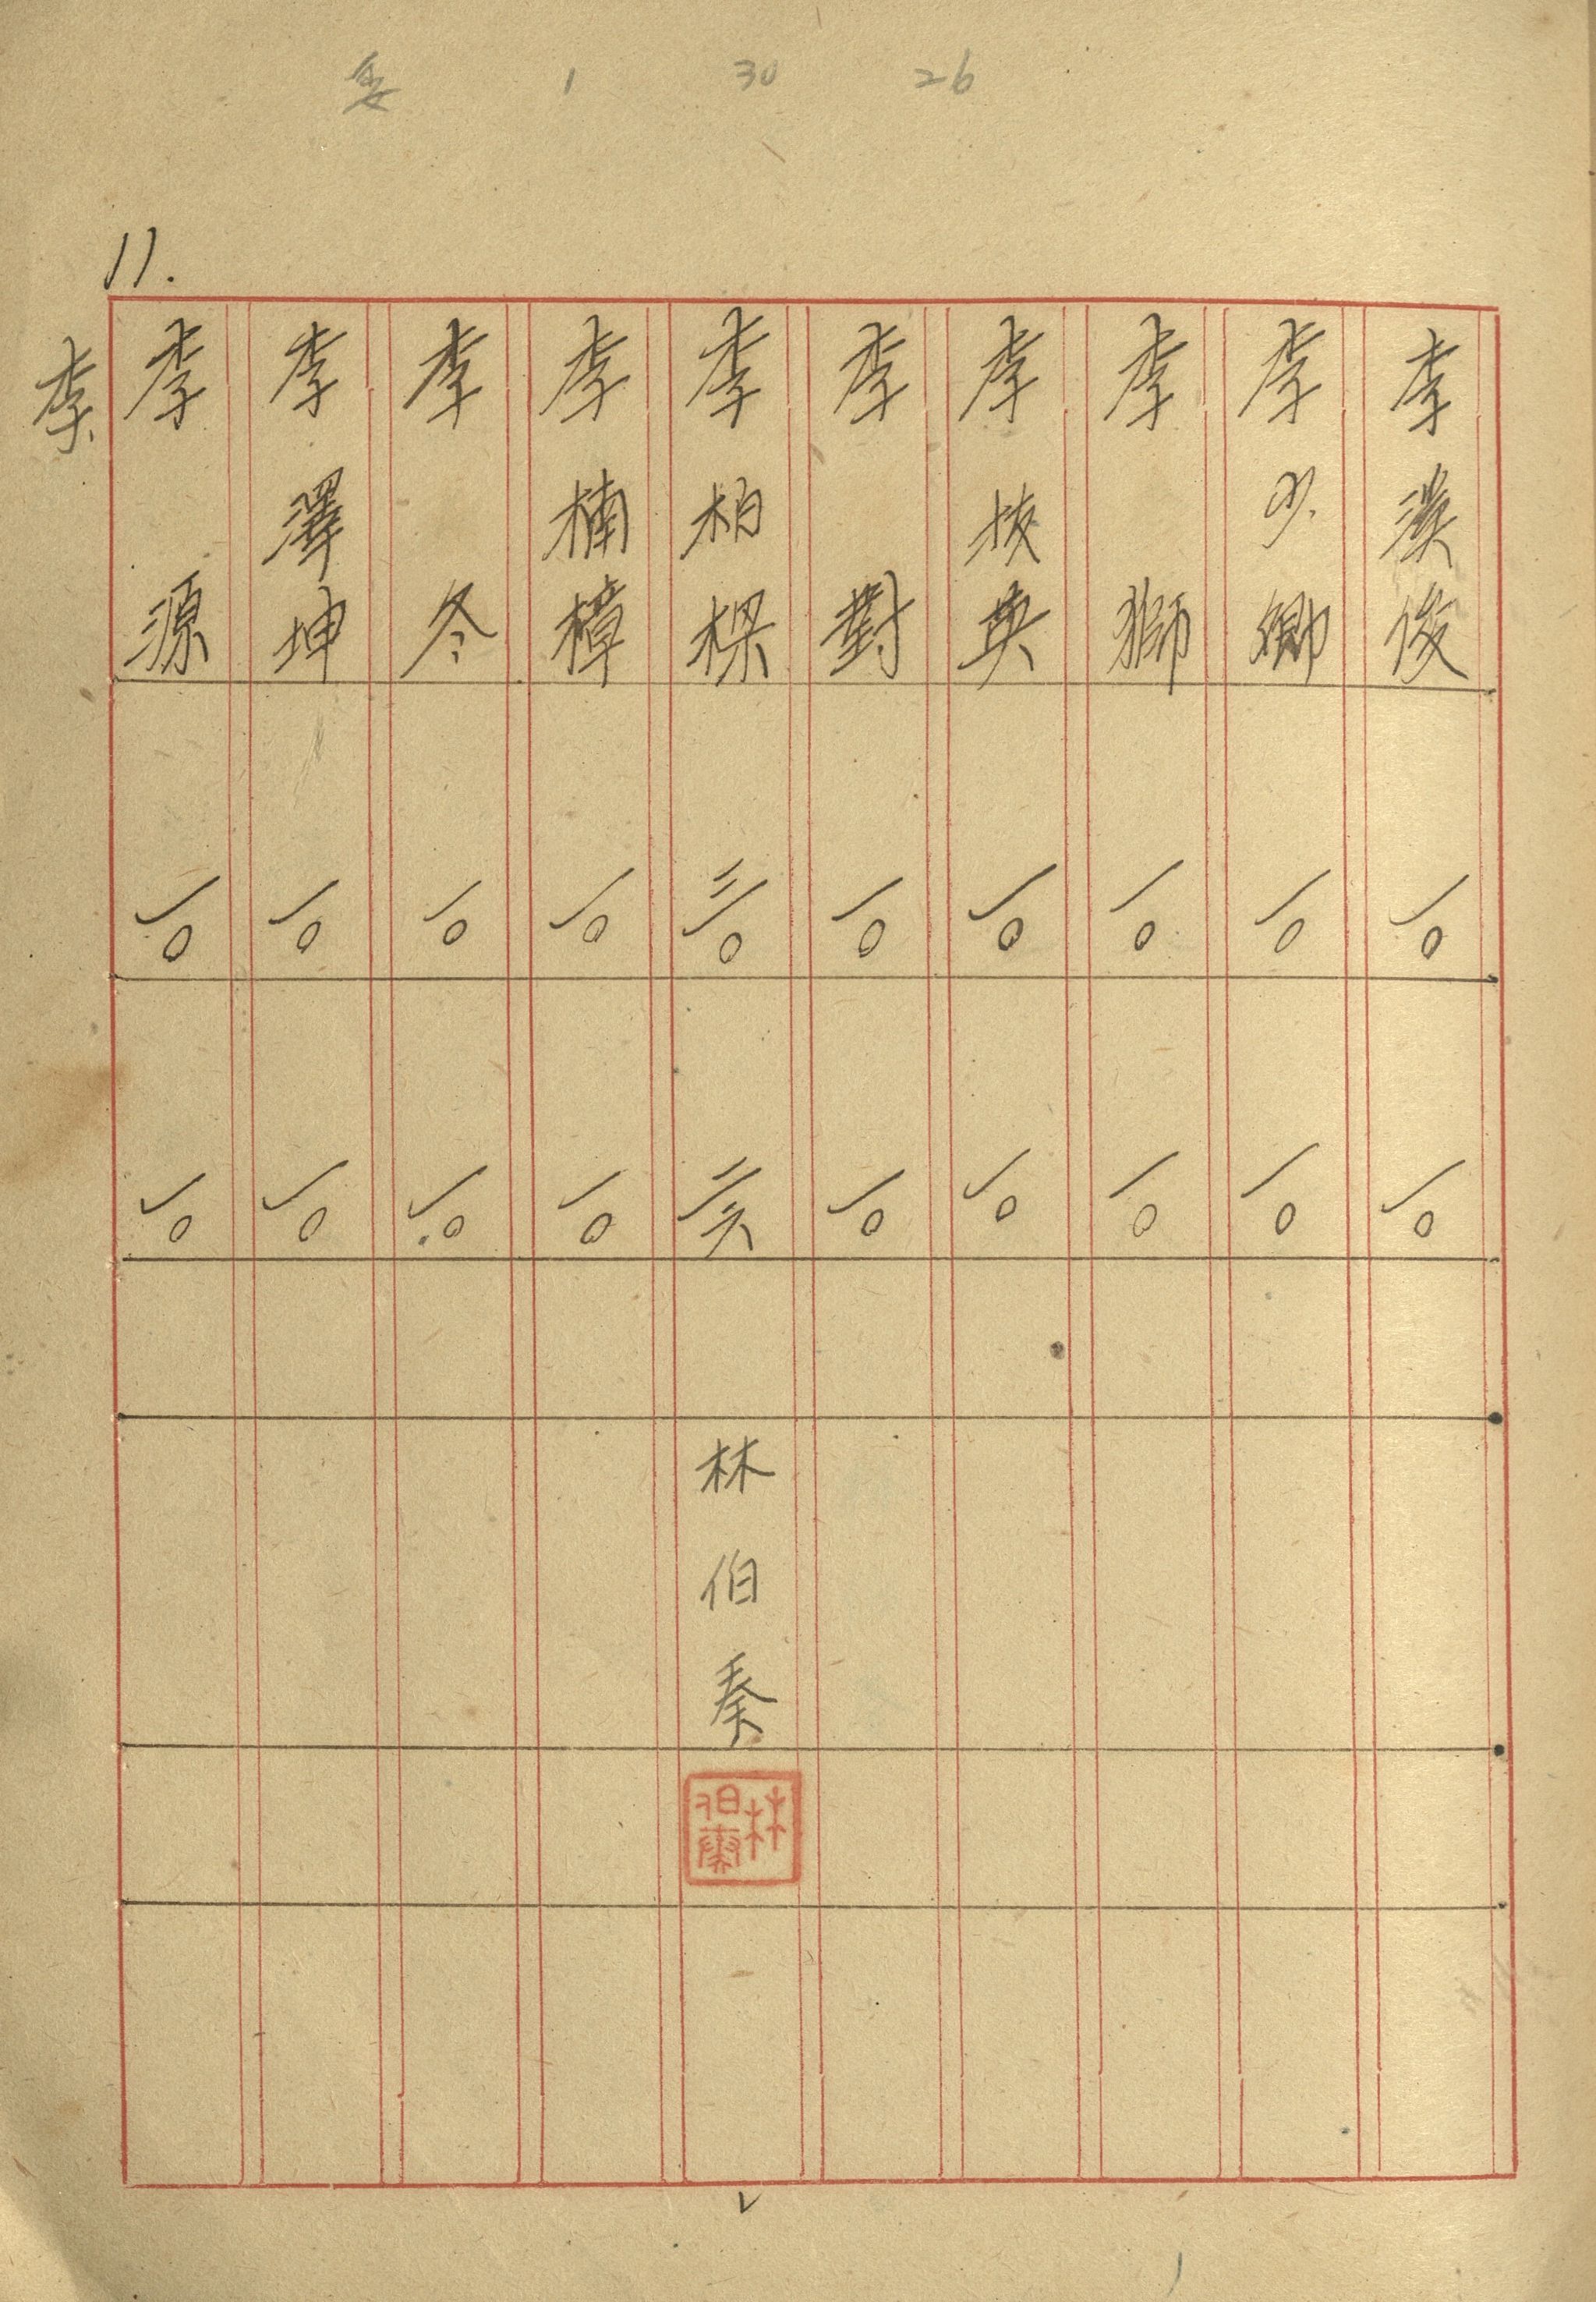 1 30 26
11.
李漢俊 一〇 一〇
李少卿 一〇 一〇
李獅 一〇 一〇
李 一〇 一〇
李對 一〇 一〇
李柏樑 三〇 三六 林伯奏 林伯奏
李楠樟 一〇 一〇
李冬 一〇 一〇
李澤坤 一〇 一〇
李源 一〇 一〇
李